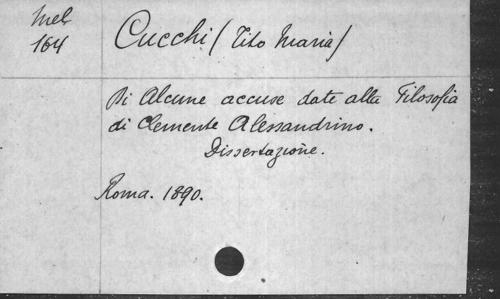 Mel
164
Cucchi (Tito Maria)
Di Alcune accuse date alla Filosofia
di Clemente Alessandrino.
Dissertazione.
Roma. 1890.